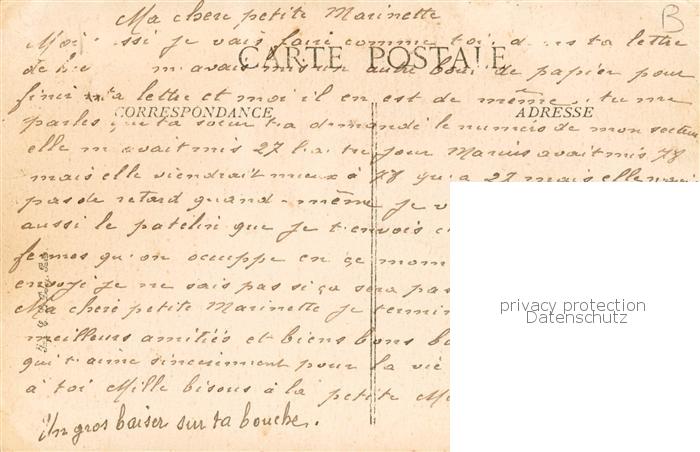 Ma chere petite Marinette
B
Moi aussi je vais faire comme toi dans ta lettre
CARTE POSTALE
de m'avais mis un autre bout de papier pour
finir ta lettre et moi il en est de même. tu me
CORRESPONDANCE
ADRESSE
parles que ta soeur t'a demandé le numero de mon secteur
elle m avait mis 27 l'autre jour Marius avait mis 78
mais elle viendrait mieux à 78 qu'a 27 mais elle
pas de retard quand-même je
aussi le patelin que je t'envois
fermes qu'on occuppe en ce mom
envoji je ne sais pas si ça sera pas
Ma cheré petite Marinette je termin
meilleurs amitiés et biens bons ba
qui t'aime sincerement pour la vie
à toi Mille bisous à la petite
Un gros baiser sur ta bouche.
privacy protection
Datenschutz